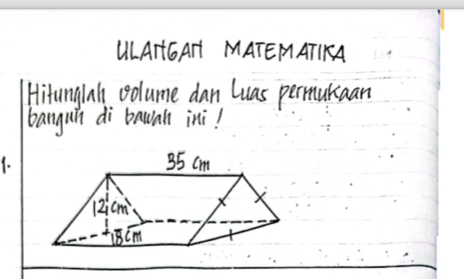 ULANGAN MATEMATIKA
Hitunglah volume dan Luas permukaan
bangun di bawah ini !
1.
35 cm
12 cm
18 cm